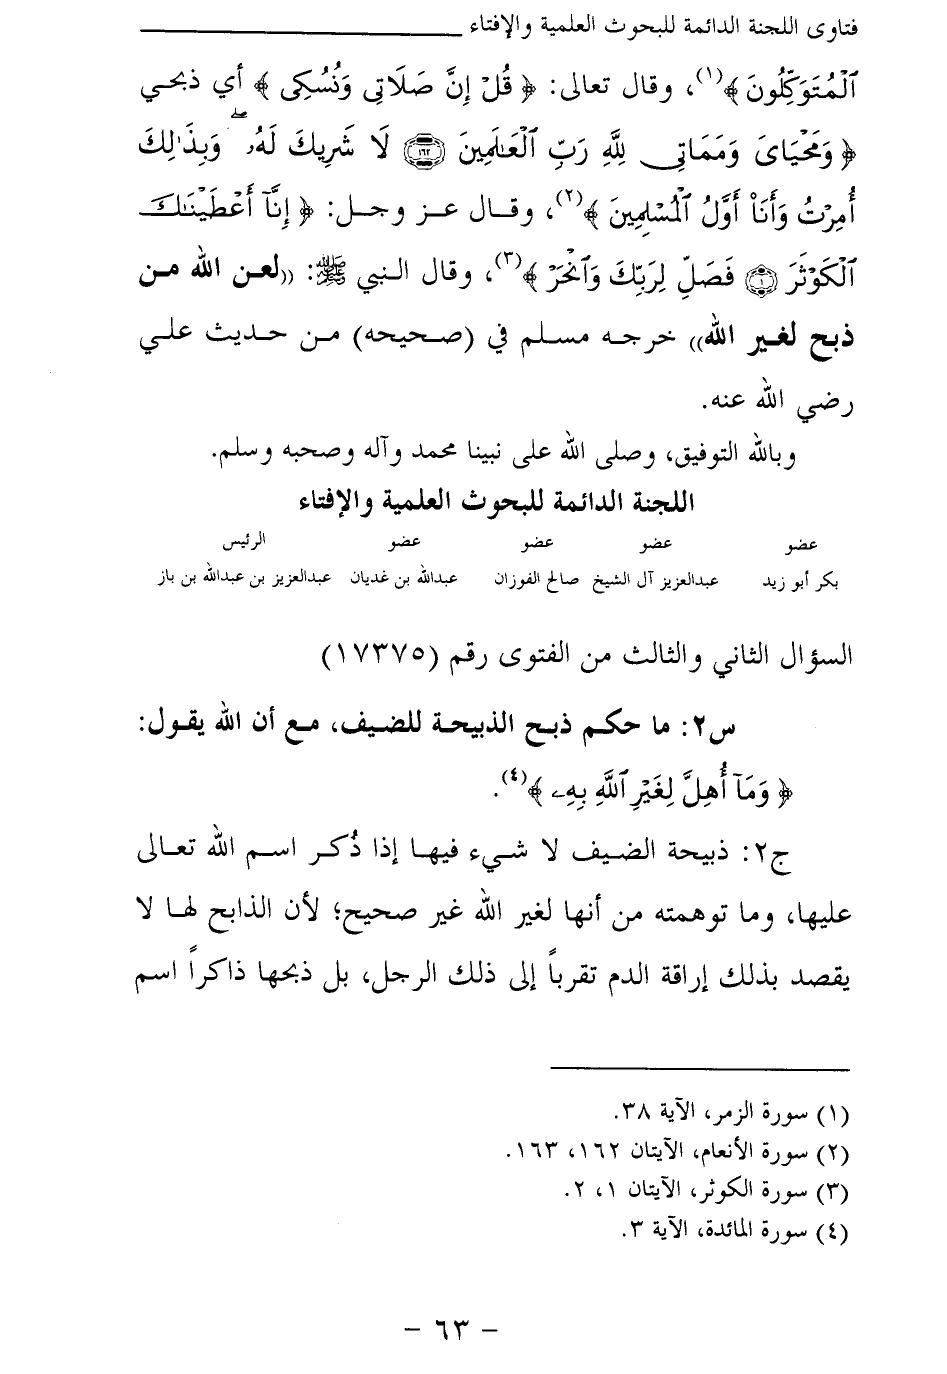 فتاوى اللجنة الدائمة للبحوث العلمية والإفتاء
ٱلْمُتَوَكِّلُونَ ﴾(١)، وقال تعالى: ﴿ قُلْ إِنَّ صَلَاتِى وَنُسُكِى ﴾ أي ذبحي
﴿ وَمَحْيَاىَ وَمَمَاتِى لِلَّهِ رَبِّ ٱلْعَـٰلَمِينَ ١٦٢ لَا شَرِيكَ لَهُۥ ۖ وَبِذَٰلِكَ
أُمِرْتُ وَأَنَا۠ أَوَّلُ ٱلْمُسْلِمِينَ ﴾(٢)، وقال عز وجل: ﴿ إِنَّآ أَعْطَيْنَـٰكَ
ٱلْكَوْثَرَ ١ فَصَلِّ لِرَبِّكَ وَٱنْحَرْ ﴾(٣)، وقال النبي ﷺ: ((لعن الله من
ذبح لغير الله)) خرجه مسلم في (صحيحه) من حديث علي
رضي الله عنه.
وبالله التوفيق، وصلى الله على نبينا محمد وآله وصحبه وسلم.
اللجنة الدائمة للبحوث العلمية والإفتاء
عضو عضو عضو عضو الرئيس
بكر أبو زيد عبدالعزيز آل الشيخ صالح الفوزان عبدالله بن غديان عبدالعزيز بن عبدالله بن باز
السؤال الثاني والثالث من الفتوى رقم (١٧٣٧٥)
س٢: ما حكم ذبح الذبيحة للضيف، مع أن الله يقول:
﴿ وَمَآ أُهِلَّ لِغَيْرِ ٱللَّهِ بِهِۦ ﴾(٤).
ج٢: ذبيحة الضيف لا شيء فيها إذا ذُكر اسم الله تعالى
عليها، وما توهمته من أنها لغير الله غير صحيح؛ لأن الذابح لها لا
يقصد بذلك إراقة الدم تقرباً إلى ذلك الرجل، بل ذبحها ذاكراً اسم
(١) سورة الزمر، الآية ٣٨.
(٢) سورة الأنعام، الآيتان ١٦٢، ١٦٣.
(٣) سورة الكوثر، الآيتان ١، ٢.
(٤) سورة المائدة، الآية ٣.
- ٦٣ -